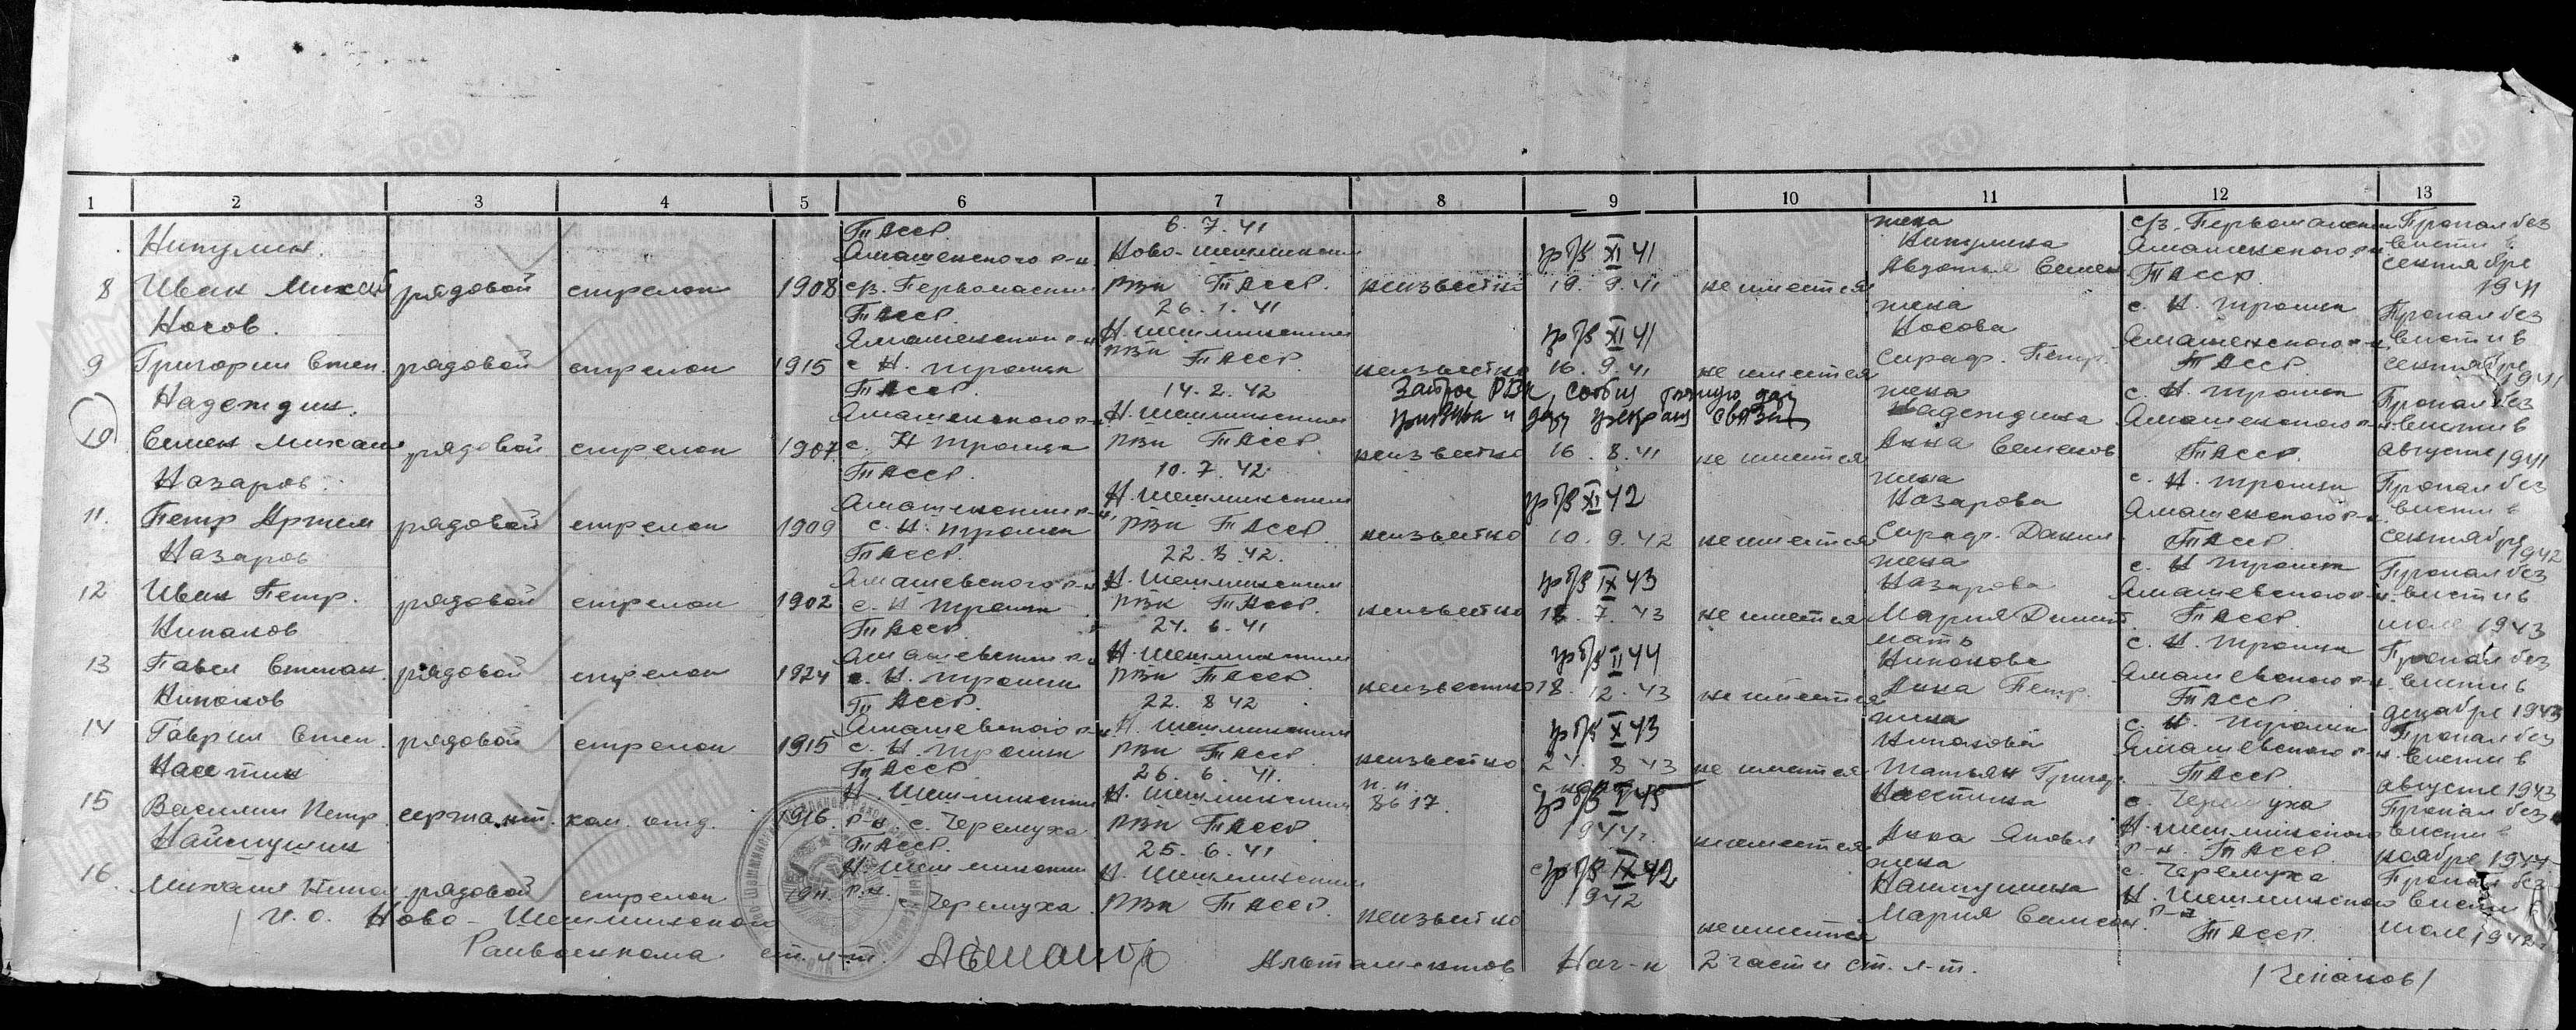 1 2 3 4 5 6 7 8 9 10 11 12 13
ТАССР 6. 7. 41 жена с/з. Первомайский Пропал без
Никулин. Ямашенского р-н. Ново-Шешминский пр б/в XI 41 Никулина Ямашенского р-н вести в
8 Иван Михай рядовой стрелок 1908 с/з. Первомайский РВК ТАССР. неизвестно 19. 9. 41 не имеется Авдотья Семен ТАССР. сентябре 1941
Носов. ТАССР. 26. 1. 41 жена с. Н. Троицк Пропал без
Ямашенский р-н Н. Шешминский пр б/в XI 41 Носова Ямашенского р-н вести в
9 Григорий Степ. рядовой стрелок 1915 с. Н. Троицк РВК ТАССР. неизвестно 16. 9. 41 не имеется Сираф. Петр. ТАССР. сентябре 1941
Надеждин. ТАССР. 14. 2. 42 Запрос РВК, сообщ точную дату жена с. Н. Троицк Пропал без
Ямашенского р-н Н. Шешминский призыва и дату прекращ связи Надеждина Ямашенского р-н вести в
10 Семен Михай рядовой стрелок 1907 с. Н Троицк РВК ТАССР неизвестно 16. 8. 41 не имеется Анна Семенов ТАССР. августе 1941
Назаров. ТАССР. 10. 7. 42 жена с. Н. Троицк Пропал без
Ямашенский р-н Н. Шешминский пр б/в XI 42 Назарова Ямашенского р-н вести в
11. Петр Артем рядовой стрелок 1909 с. Н. Троицк РВК ТАССР. неизвестно 10. 9. 42 не имеется Сираф. Данил. ТАССР. сентябре 1942
Назаров ТАССР. 22. 8. 42. жена с. Н Троицк Пропал без
Ямашевского р-н Н. Шешминский пр б/в IX 43 Назарова Ямашевского р-н вести в
12 Иван Петр. рядовой стрелок 1902 с. Н Троицк РВК ТАССР. неизвестно 7. 43 не имеется Мария Дмит. ТАССР. июле 1943
Никонов ТАССР. 24. 6. 41 мать с. Н. Троицк Пропал без
Ямашевский р-н Н. Шешминский пр б/в II 44 Никонова Ямашевского р-н вести в
13 Павел Степан. рядовой стрелок 1924 с. Н. Троицк РВК ТАССР неизвестно 18. 12. 43 не имеется Анна Петр. ТАССР декабре 1943
Никонов ТАССР. 22. 8 42 жена с. Н. Троицк Пропал без
Ямашевского р-н Н. Шешминский пр б/в X 43 Никонова Ямашевского р-н вести в
14 Гаврил Степ. рядовой стрелок 1915 с. Н. Троицк РВК ТАССР неизвестно 24. 8 43 не имеется Татьян Григор. ТАССР августе 1943
Насетин ТАССР 26. 6. 41. п.п. с. Черемуха Пропал без
Н Шешминский Н. Шешминский 8617. пр б/в V 45 Насетина Н. Шешминского вести в
15 Василий Петр. сержант. ком. отд. 1916. р-н с. Черемуха РВК ТАССР 1944г. не имеется Анна Яковл р-н. ТАССР ноябре 1944
Найтушин ТАССР. 25. 6. 41 жена с. Черемуха Пропал без
Н Шешминский Н. Шешминский пр б/в IX 42 Найтушина Н. Шешминского вести в
16. Михаил рядовой стрелок 1911. р-н. с Черемуха РВК ТАССР. неизвестно 942 не имеется Мария Семен. р-н ТАССР. июле 1942
/ И. о. Ново-Шешминского
Райвоенкома ст. л-т. Нач-к 2 части ст. л-т. /Чепаков/